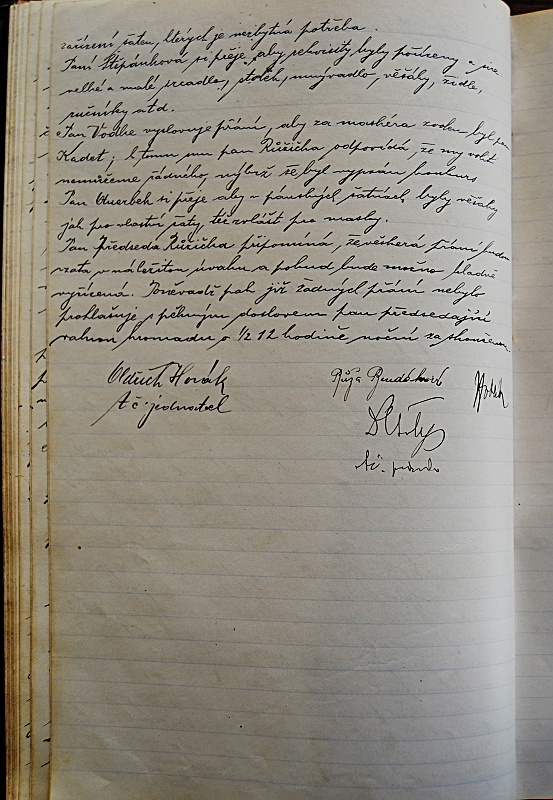 zařízení šaten, kterých je nezbytná potřeba.
Paní Štěpánková si přeje, aby rekvisity byly pořízeny a sice
velké a malé zrcadlo, stolek, umývadlo, věšáky, židle,
ručníky atd.
Pan Vodke vyslovuje přání, aby za maskéra zvolen byl pan
Kadet; k tomu mu pan Růžička odpovídá, že my volit
nemůžeme řádného, nýbrž se byl vypsán konkurs
Pan Auerbek si přeje aby v pánských šatnách byly věšáky
jak pro vlastní šaty, též zvlášť pro masky.
Pan předseda Růžička připomíná, že všeherá přání budou
vzata v náležitou úvahu a pokud bude možno kladně
vyřízena. Poněvadž pak již žádných přání nebylo
prohlašuje s pěkným doslovem pan předsedající
valnou hromadu o ½ 12 hodině noční za skončenou.
Oldřich Horák
t. č. jednatel
Růža Bendáková
t. č.